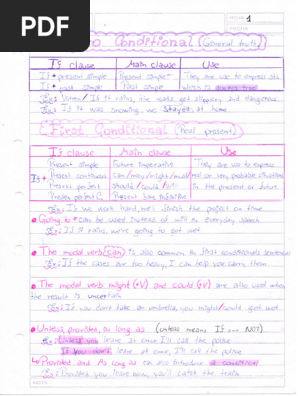 PDF
HOJA: 1
FECHA:
ro Conditional (General truth)
If clause Main clause Use
If + present simple Present simple They are use to express sts
If + past simple Past simple which is always true
Ex: When / If it rains, the roads get slippery and dangerous.
Ex: If it was snowing, we stayed at home
First Conditional (Real present)
If clause Main clause Use
Present simple Future Imperative They are use to express
If + Present continuous Can/may/might/must real or very probable situations
Present perfect Should/could/will in the present or future.
Present perfect C. Present Simple
Ex: If we work hard, we'll finish the project on time
Going to can be used instead of will in everyday speech
Ex: If it rains, we're going to get wet
The modal verb can is also common in first conditional sentences
Ex: If the cases are too heavy, I can help you carry them
The modal verb might (+V) and could (+V) are also used when
the result is uncertain
Ex: If you don't take an umbrella, you might/could get wet
Unless, provided, as long as (unless means If ... NOT)
Ex: Unless you leave at once I'll call the police
If you don't leave at once, I'll call the police
Provided and As long as can also introduce a condition
Ex: Provided you leave now, you'll catch the train
NOTA